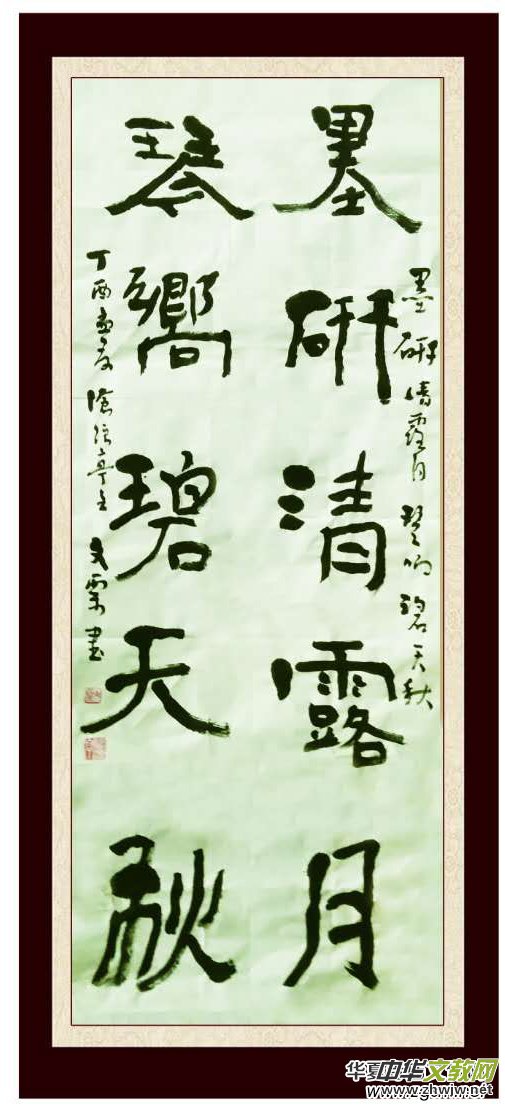 墨研清露月
琴響碧天秋
墨研清露月 琴响碧天秋
丁酉孟夏
文采书
华夏中华文教网
www.zhwjw.net